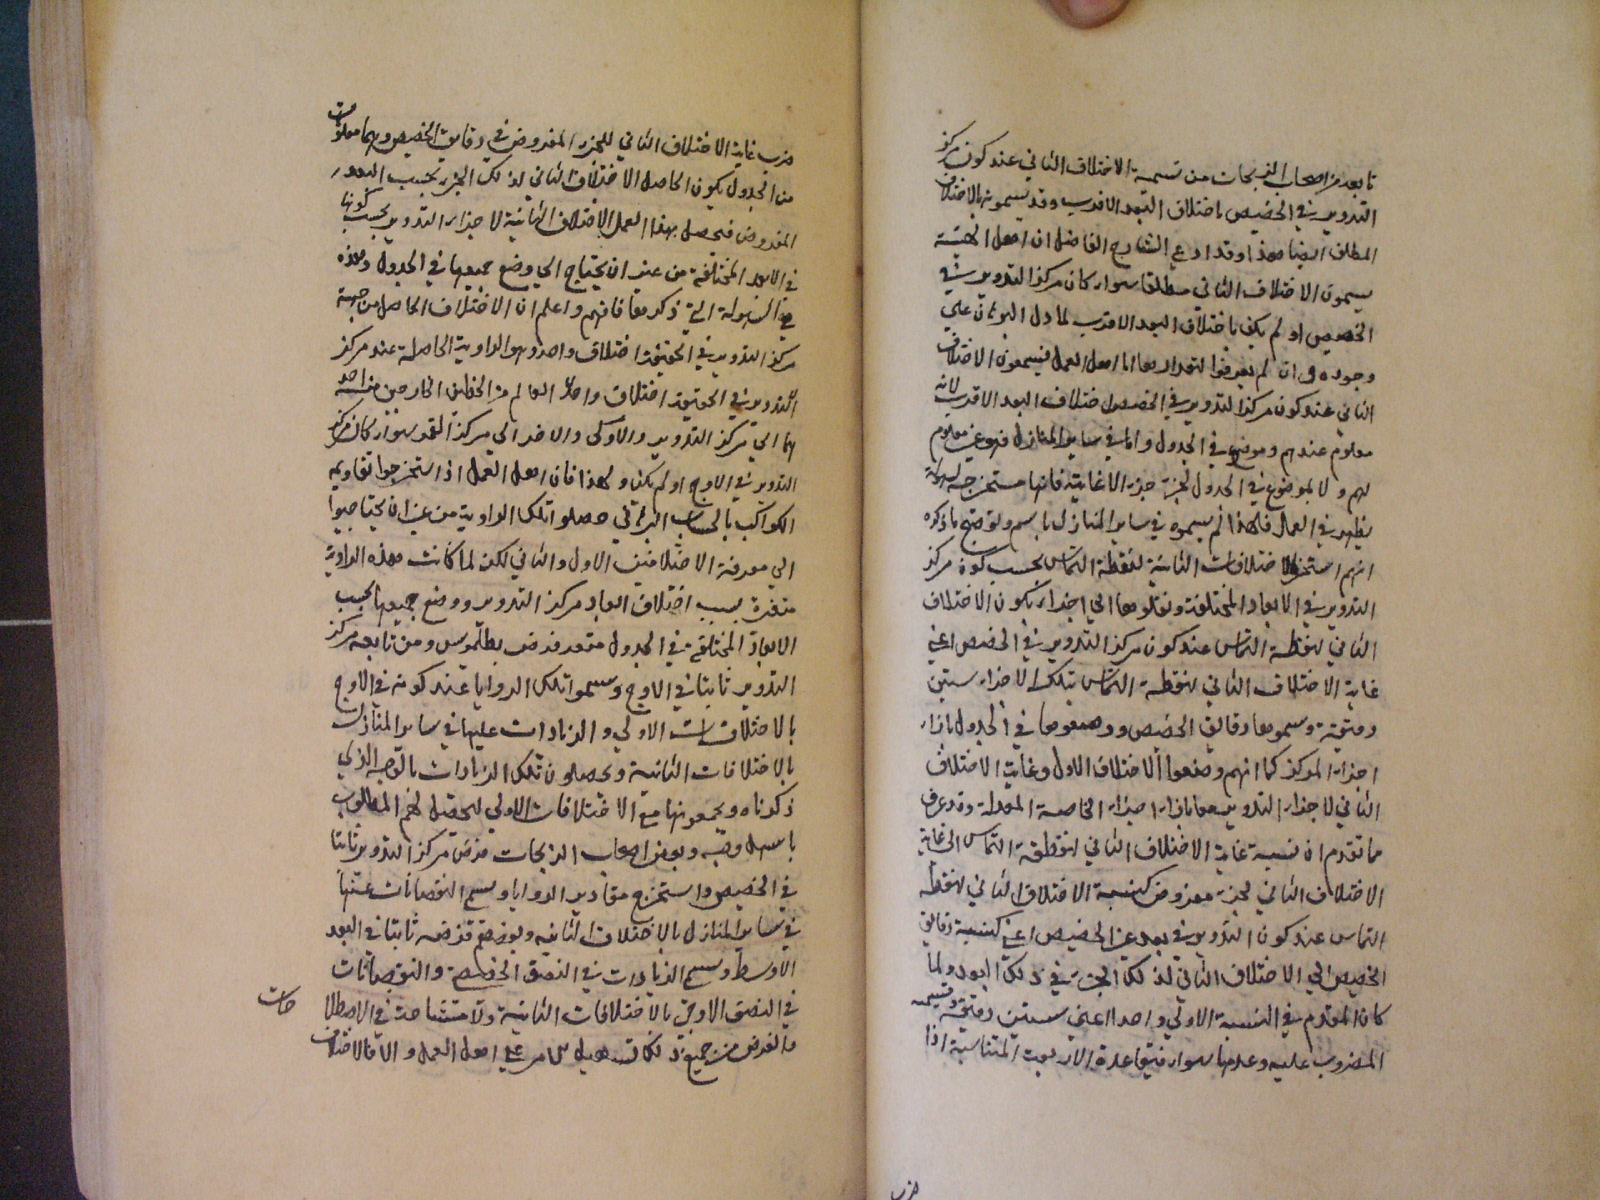 تابعه من اصحاب الزيجات من تسمية الاختلاف الثاني عند كون مركز
التدوير في الحضيض باختلاف البعد الاقرب وقد يسمونه بالاختلاف
المطلق ايضا هذا وقد ادعي الشارح الفاضل ان اهل الهيئة
يسمون الاختلاف الثاني مطلقا سواء كان مركز التدوير في
الحضيض او لم يكن باختلاف البعد الاقرب لما دل البرهان علي
وجوده وان لم يعرفوا لتعد اما اهل العمل فيسمون الاختلاف
الثاني عند كون مركز التدوير في الحضيض اختلاف البعد الاقرب لانه
معلوم عندهم وموضوع في الجدول واما في ساير المنازل فهو غير معلوم
لهم ولا بموضوع في الجدول لجزء جزء الا غايته فانها مستخرجة لسهولة
يظهر في العمل فلهذا لم يسموه في ساير المنازل باسم وتوضيح ما ذكره
انهم استخرجوا الاختلافات الثانية لنقطة التماس بحسب كون مركز
التدوير في الابعاد المختلفة ونقلوها الي اجزاء يكون الاختلاف
الثاني لنقطة التماس عند كون مركز التدوير في الحضيض اعني
غاية الاختلاف الثاني لنقطة التماس بتلك الاجزاء ستين
دقيقة وسموها دقايق الحضيض ووضعوها في الجدول بازاء
اجزاء المركز كما انهم وضعوا الاختلاف الاول وغاية الاختلاف
الثاني لاجزاء التدوير معا بازاء اجزاء الخاصة المعدلة وقد عرف
ما تقدم ان نسبة غاية الاختلاف الثاني لنقطة التماس الي غاية
الاختلاف الثاني لجزء مفروض كنسبة الاختلاف الثاني لنقطة
التماس عند كون التدوير في بعد غير الحضيض اعني كنسبة دقايق
الحضيض الي الاختلاف الثاني لذلك الجزء في ذلك البعد ولما
كان المقدم في النسبة الاولي واحدا اعني ستين دقيقة وقسمة
المضروب عليه وعدمها سواء فبقاعدة الاربعة المتناسبة اذا
ضرب
ضرب غاية الاختلاف الثاني للجزء المفروض في دقايق الحضيض وهما معلومت
من الجدول يكون الحاصل الاختلاف الثاني لذلك الجزء بحسب البعد
المفروض فيحصل بهذا العمل الاختلافات الثانية لاجزاء التدوير بحسب كونها
في الابعاد المختلفة من غير ان يحتاج الي وضع جميعها في الجدول وهذه
هي السهولة التي ذكرها فافهم واعلم ان الاختلاف الحاصل من جهة
مركز التدوير في الحقيقة اختلاف واحد وهو الزاوية الحاصلة عند مركز
التدوير في الحقيقة اختلاف واحد العالم من الخطين الخارجين منه احد
هما الي مركز التدوير والاولي والاخر الي مركز القمر سواء كان مركز
التدوير في الاوج او لم يكن ولهذا فان اهل العمل اذا استخرجوا تقاويم
الكواكب بالحساب البرهاني حصلوا تلك الزاوية من غير ان يحتاجوا
الي معرفة الاختلافين الاول والثاني لكن لما كانت هذه الزاوية
متغيرة بسبب اختلاف ابعاد مركز التدوير ووضع جميعها بحسب
الابعاد المختلفة في الجدول متعذر فرض بطلميوس ومن تابعه مركز
التدوير ثابتا في الاوج وسموا تلك الزوايا عند كونه في الاوج
بالاختلافات الاولي والزيادات عليها في ساير المنازل
بالاختلافات الثانية ويحصلون تلك الزيادات بالوجه الذي
ذكرناه ويجمعونها مع الاختلافات الاولي ليحصل لهم المطلوب
باسهل وجه وبعض اصحاب الزيجات فرض مركز التدوير ثابتا
في الحضيض واستخرج مقادير الزوايا وسمي النقصانات عنها
في ساير المنازل بالاختلافات الثانية وبعضهم فرضه ثابتا في البعد
الاوسط وسمي الزيادات في النصف الحضيضية والنقصانات
في النصف الاوجي بالاختلافات الثانية ولا مشاحة في الاصطلا
حات
والغرض من جميع ذلك تسهيل الامر علي اهل العمل والا فالاختلاف